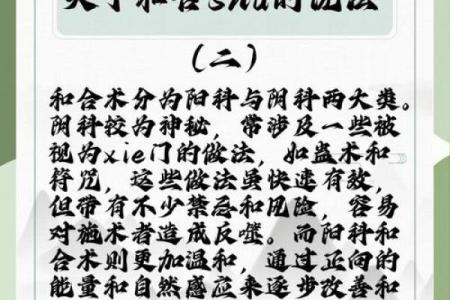 关于和合shu的说法
（二）
和合术分为阳科与阴科两大类。
阴科较为神秘，常涉及一些被
视为xie门的做法，如蛊术和
符咒，这些做法虽快速有效，
但带有不少禁忌和风险，容易
对施术者造成反噬。而阳科和
合术则更加温和，通过正向的
能量和自然感应来逐步改善和